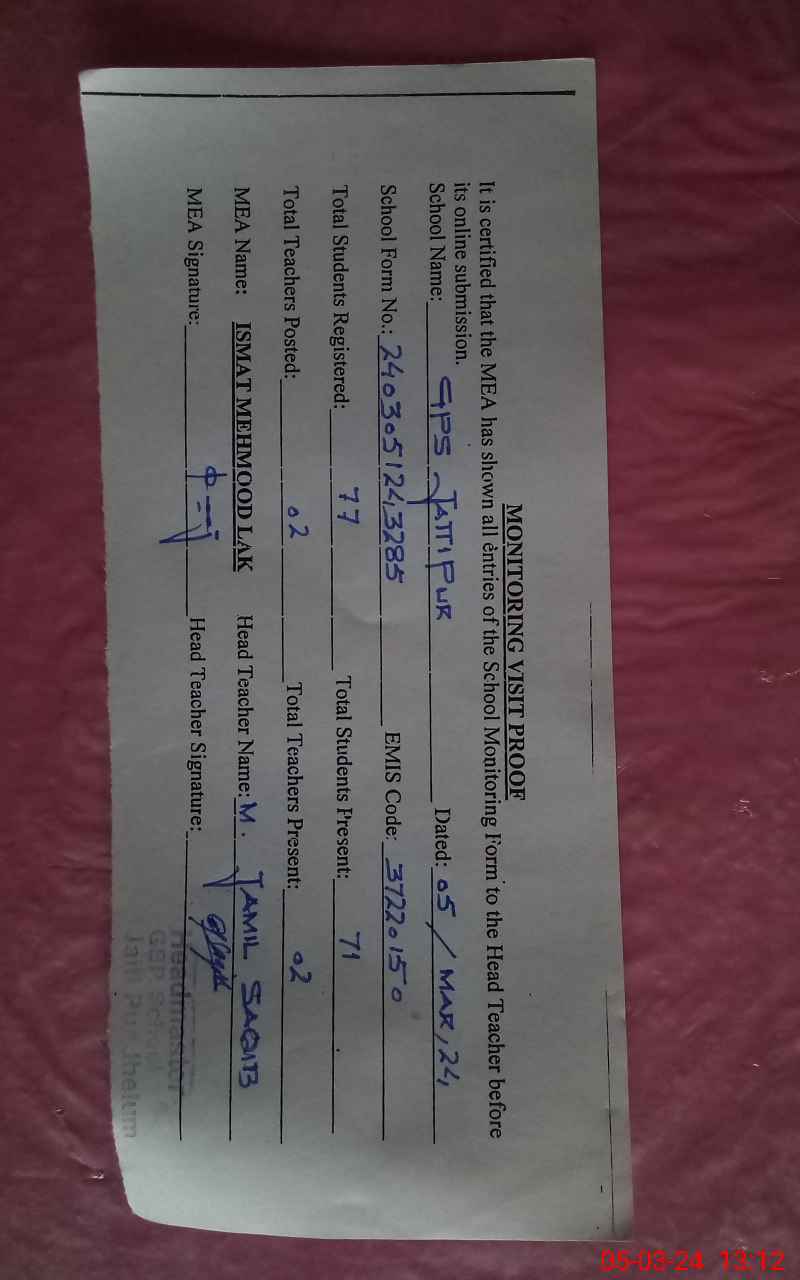 MONITORING VISIT PROOF
It is certified that the MEA has shown all entries of the School Monitoring Form to the Head Teacher before
its online submission.
School Name: GPS JATTIPUR Dated: 05 / MAR, 24
School Form No.: 2403051243285 EMIS Code: 37220150
Total Students Registered: 77 Total Students Present: 71
Total Teachers Posted: 02 Total Teachers Present: 02
MEA Name: ISMAT MEHMOOD LAK Head Teacher Name: M. JAMIL SAQIB
MEA Signature: Head Teacher Signature:
Headmaster
GSP School
Jatti Pur Jhelum
05-03-24 13:12